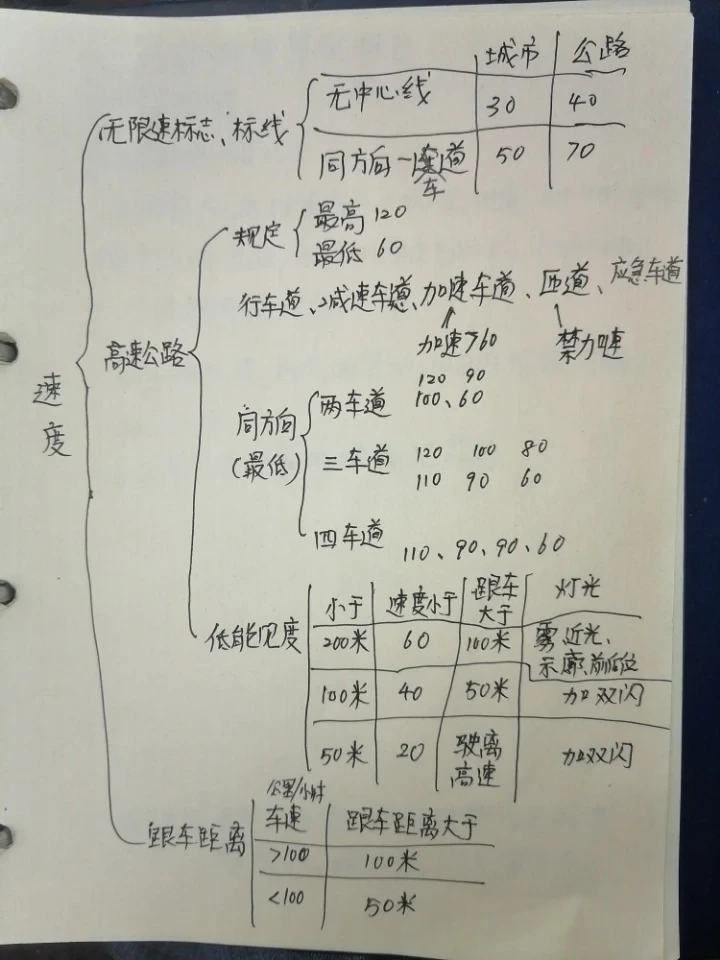 速度
无限速标志、标线
城市 公路
无中心线 30 40
同方向一车道 50 70
高速公路
规定
最高 120
最低 60
行车道、减速车道、加速车道、匝道、应急车道
加速>60 禁加速
同方向
(最低)
120 90
两车道 100、60
三车道 120 100 80
110 90 60
四车道 110、90、90、60
低能见度
小于 速度小于 跟车大于 灯光
200米 60 100米 雾 近光、
示廓、前后位
100米 40 50米 加双闪
50米 20 驶离高速 加双闪
跟车距离
公里/小时
车速 跟车距离大于
>100 100米
<100 50米